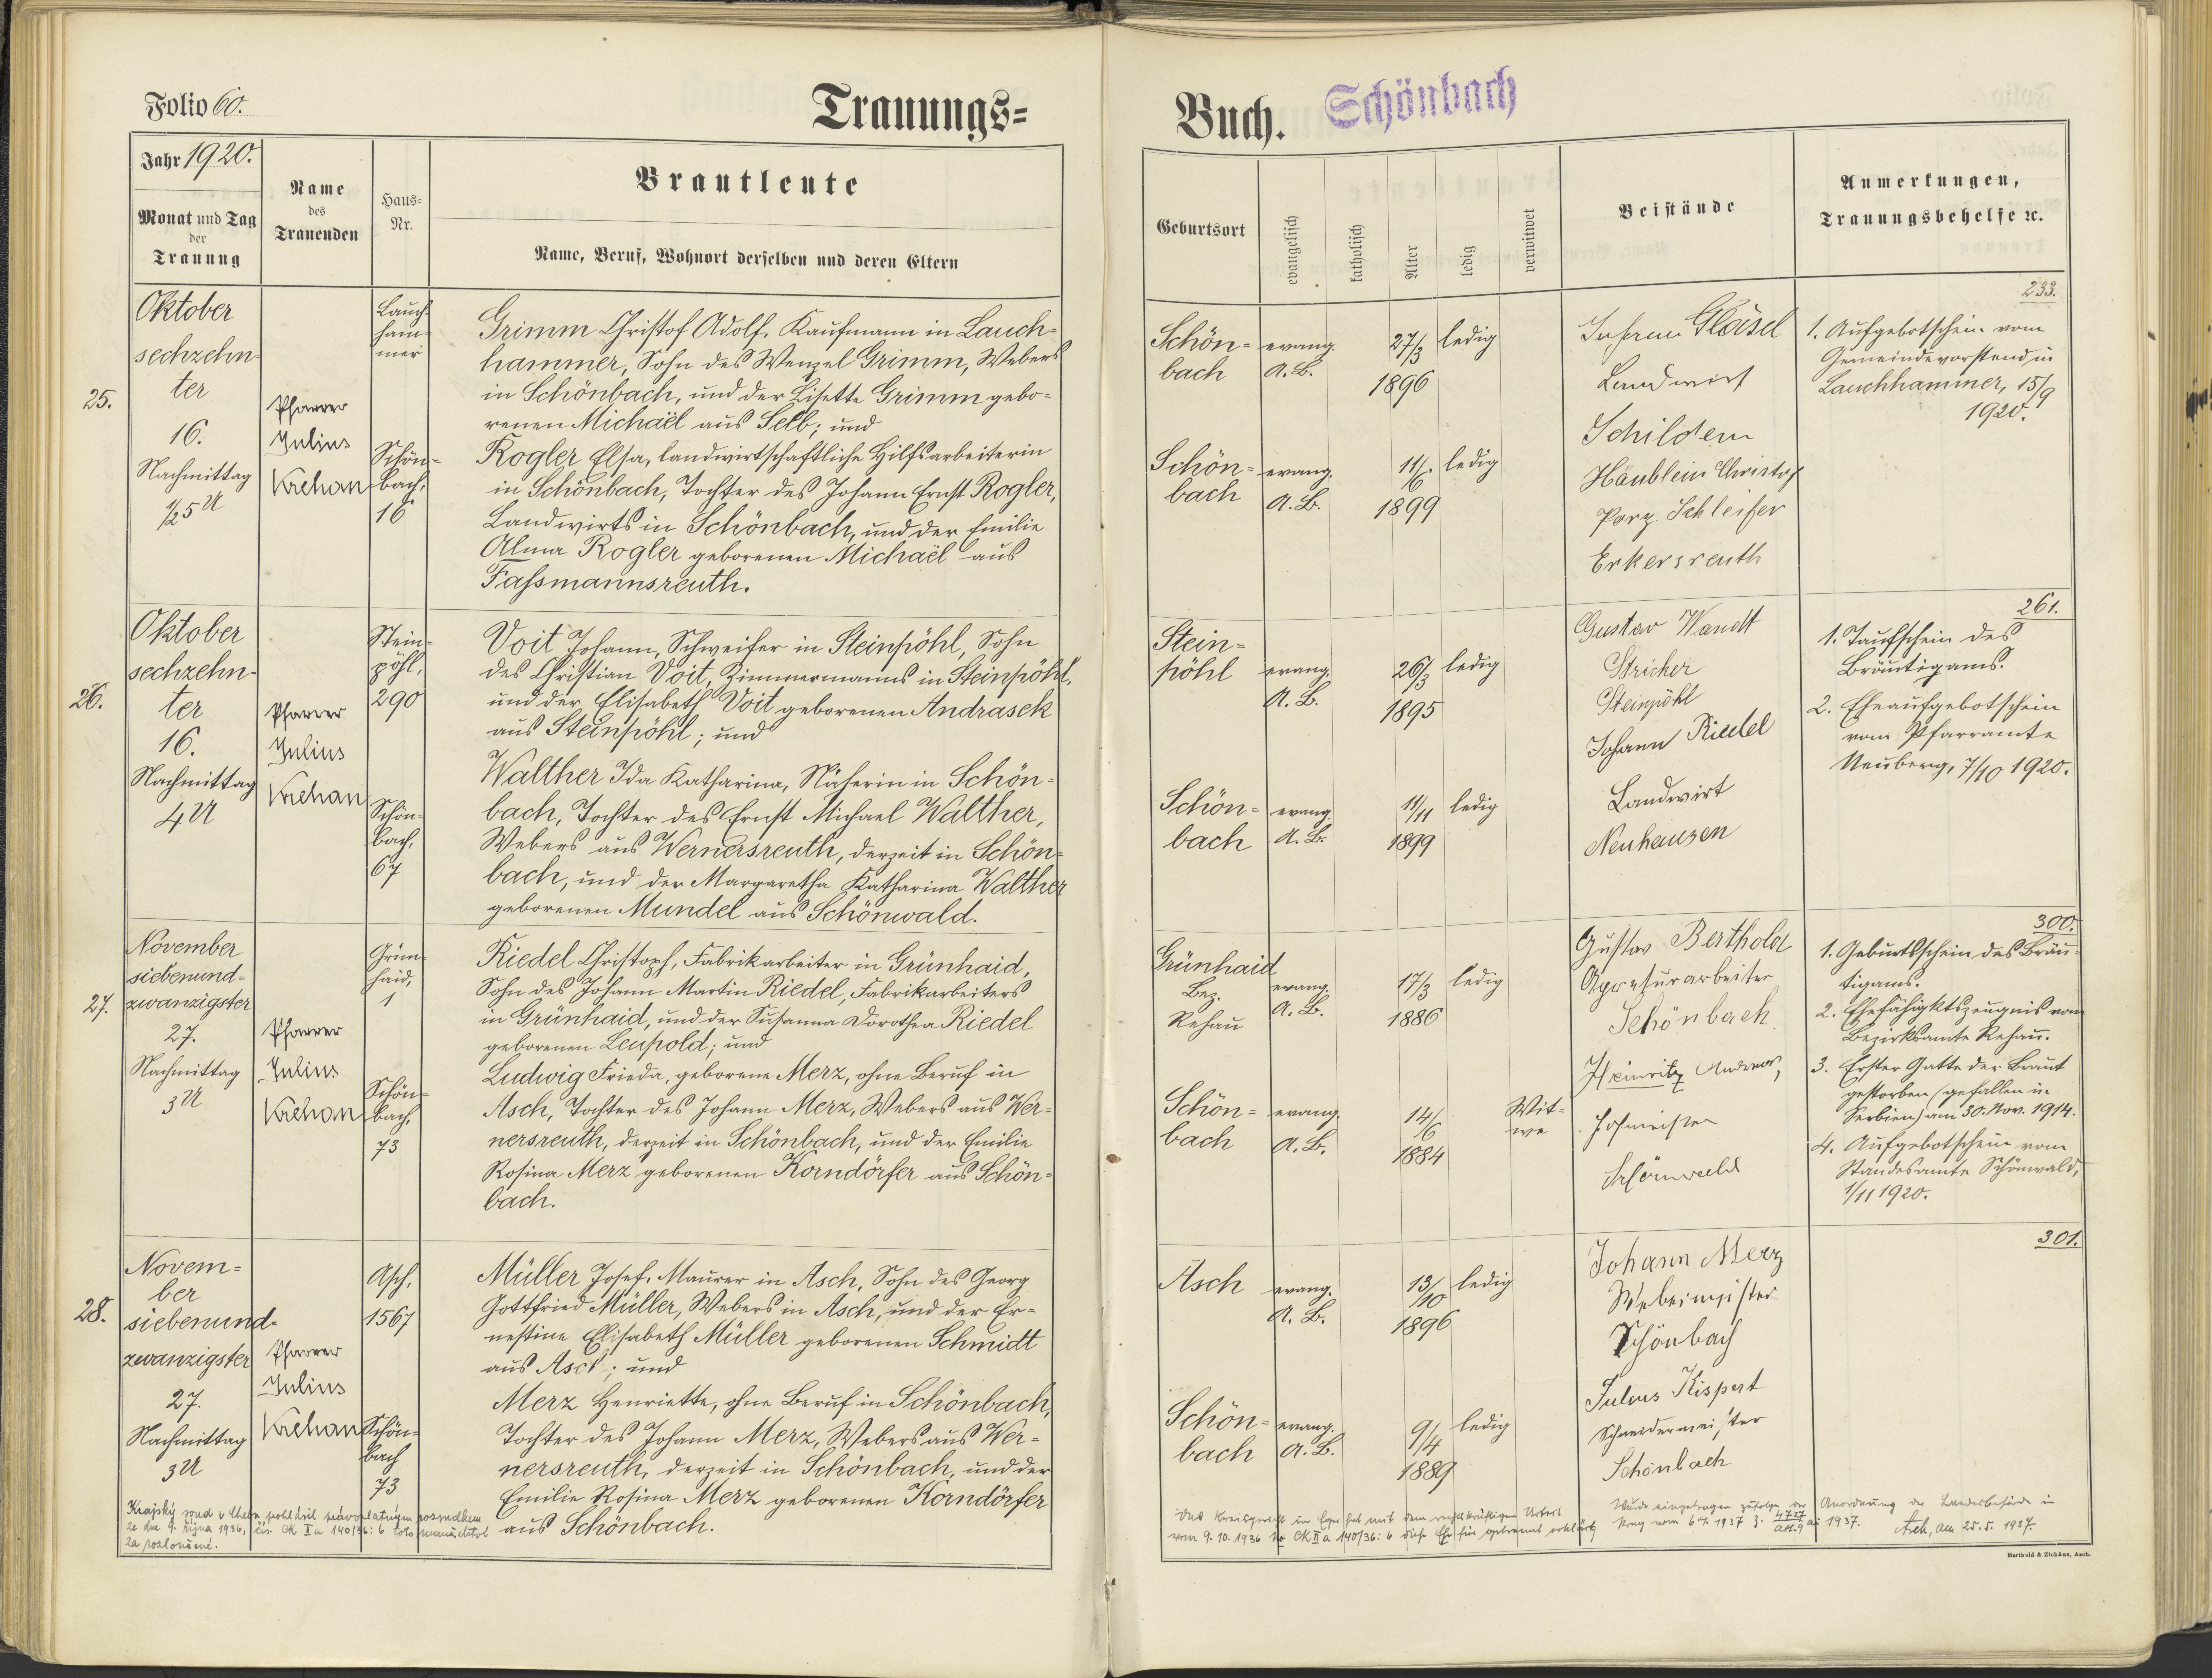 Folio 60.
Trauungs=
Jahr 1920.
Monat und Tag
der
Trauung
Name
des
Trauenden
Haus=
Nr.
Brautleute
Name, Beruf, Wohnort derselben und deren Eltern
25.
Oktober
sechzehn-
ter
16.
Nachmittag
1/2 5 U
Pfarrer
Julius
Krehan
Lauch-
ham-
mer
Schön-
bach,
16
Grimm Christof Adolf, Kaufmann in Lauch=
hammer, Sohn des Wenzel Grimm, Webers
in Schönbach, und der Lisette Grimm gebo=
renen Michaël aus Selb; und
Rogler Elsa, landwirtschaftliche Hilfsarbeiterin
in Schönbach, Tochter des Johann Ernst Rogler,
Landwirts in Schönbach, und der Emilie
Alma Rogler geborenen Michaël aus
Faßmannsreuth.
26.
Oktober
sechzehn-
ter
16.
Nachmittag
4 U
Pfarrer
Julius
Krehan
Stein-
pöhl,
290
Schön-
bach,
67
Voit Johann, Schweifer in Steinpöhl, Sohn
des Christian Voit, Zimmermanns in Steinpöhl,
und der Elisabeth Voit geborenen Andrasek
aus Steinpöhl; und
Walther Ida Katharina, Näherin in Schön=
bach, Tochter des Ernst Michael Walther,
Webers aus Wernersreuth, derzeit in Schön=
bach, und der Margaretha Katharina Walther
geborenen Mundel aus Schönwald.
27.
November
siebenund=
zwanzigster
27.
Nachmittag
3 U
Pfarrer
Julius
Krehan
Grün-
haid,
1
Schön-
bach,
73
Riedel Christoph, Fabrikarbeiter in Grünhaid,
Sohn des Johann Martin Riedel, Fabrikarbeiters
in Grünhaid, und der Susanna Dorothea Riedel
geborenen Leupold; und
Ludwig Frieda, geborene Merz, ohne Beruf in
Asch, Tochter des Johann Merz, Webers aus Wer=
nersreuth, derzeit in Schönbach, und der Emilie
Rosina Merz geborenen Korndörfer aus Schön=
bach.
28.
Novem=
ber
siebenund=
zwanzigster
27.
Nachmittag
3 U
Pfarrer
Julius
Krehan
Asch,
1567
Schön=
bach
73
Müller Josef, Maurer in Asch, Sohn des Georg
Gottfried Müller, Webers in Asch, und der Er=
nestine Elisabeth Müller geborenen Schmidt
aus Asch; und
Merz Henriette, ohne Beruf in Schönbach,
Tochter des Johann Merz, Webers aus Wer=
nersreuth, derzeit in Schönbach, und der
Emilie Rosina Merz geborenen Korndörfer
aus Schönbach.
Krajský soud v Chebu pohlásil právoplatným rozsudkem
ze dne 9. října 1936, čís. CK II a 140/36: 6 toto manželství
za rozloučené.
Buch.
Schönbach
Geburtsort
evangelisch
katholisch
Alter
ledig
verwitwet
Beistände
Anmerkungen,
Trauungsbehelfe rc.
Schön=
bach
evang.
A. B.
27/3
1896
ledig
Schön=
bach
evang.
A. B.
11/6
1899
ledig
Gläsel
Landwirt
Schildern
Häublein Christof
Porz. Schleifer
Erkersreuth
233.
1. Aufgebotschein vom
Gemeindevorstand in
Lauchhammer, 15/9
1920.
Stein=
pöhl
evang.
A. B.
26/3
1895
ledig
Schön=
bach
evang.
A. B.
11/11
1899
ledig
Gustav Wandt
Stricker
Steinpöhl
Johann Riedel
Landwirt
Neuhausen
261.
1. Taufschein des
Bräutigams.
2. Eheaufgebotschein
vom Pfarramte
Neuberg, 7/10 1920.
Grünhaid
Bez.
Rehau
evang.
A. B.
17/3
1886
ledig
Schön=
bach
evang.
A. B.
14/6
1884
Wit=
we
Gustav Berthold
Apreturarbeiter
Schönbach
Heinritz Andreas,
Hofmeister
Schönwald
300.
1. Geburtsschein des Bräu-
tigams.
2. Ehefähigktszeugnis vom
Bezirksamte Rehau.
3. Erster Gatte der Braut
gestorben (gefallen in
Serbien) am 30. Nov. 1914.
4. Aufgebotschein vom
Standesamte Schönwald,
1/11 1920.
Asch
evang.
A. B.
13/10
1896
ledig
Schön=
bach
evang.
A. B.
9/4
1889
ledig
Johann Merz
Webermeister
Schönbach
Julius Kispert
Schneidermeister
Schönbach
301.
Das Kreisgericht in Eger hat mit dem rechtskräftigen Urteil
vom 9. 10. 1936 No CK II a 140/36: 6 diese Ehe für getrennt erklärt
Wurde eingetragen zufolge der Anordnung der Landesbehörde in
Prag vom 1937 1937. Asch, am 25. 5. 1937.
Berthold & Zichäus, Asch.